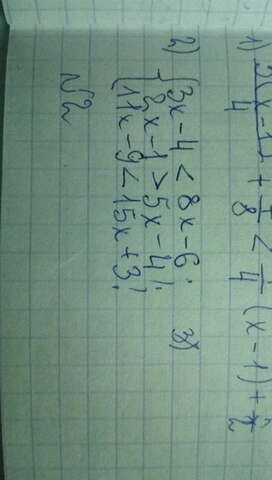 1) 3(x-1)/4 + 7/8 < 1/4 (x-1) +
2) { 3x-4 < 8x-6;
2x-1 > 5x-4;
11x-9 < 15x+3;
3)
√2